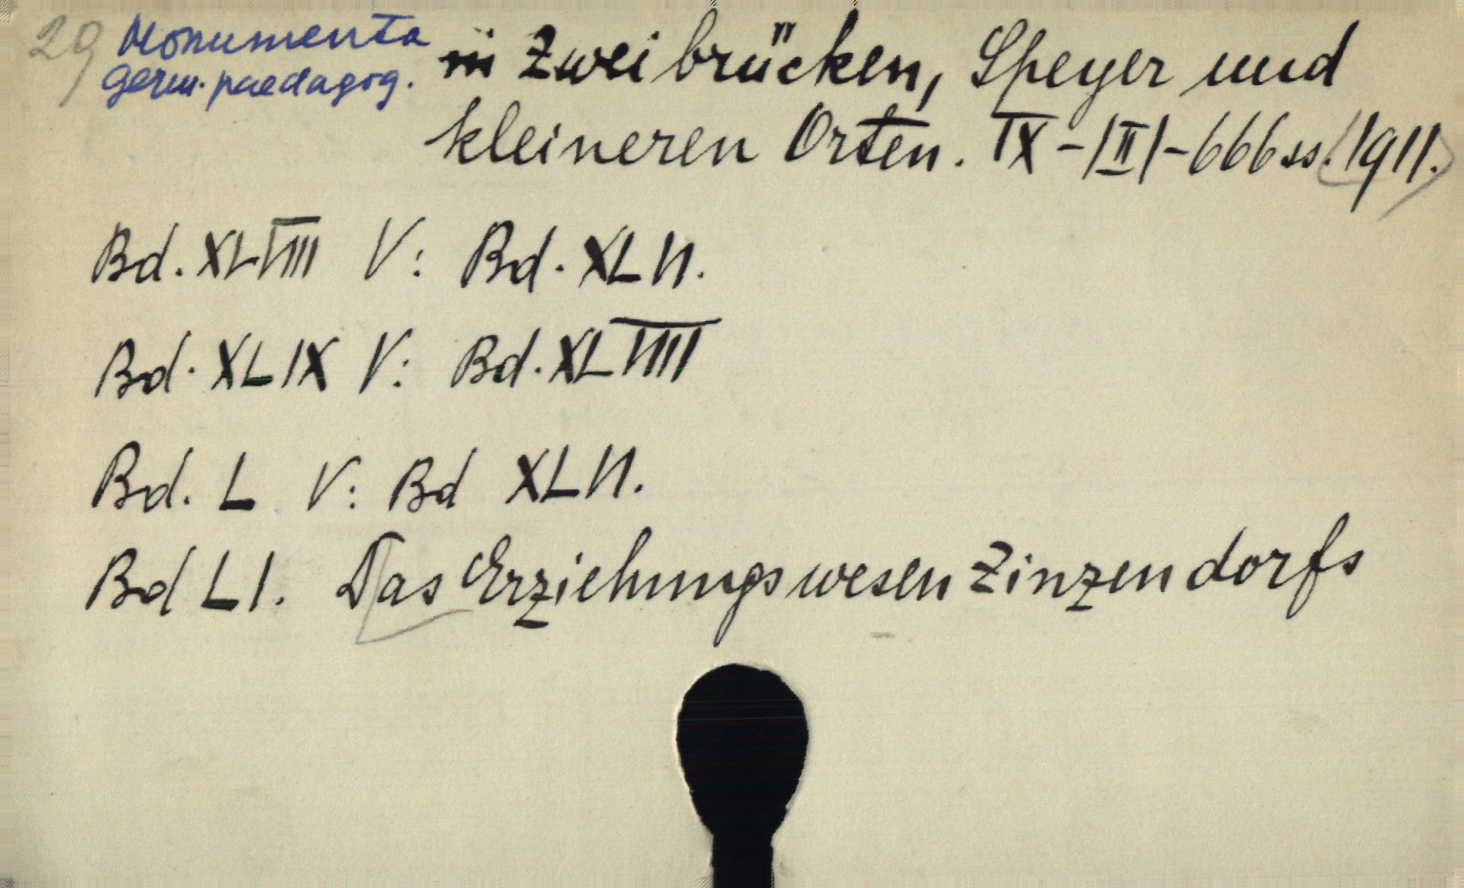 29 Monumenta
germ. paedagog.
in Zweibrücken, Speyer und
kleineren Orten. IX-|II|-666ss. (1911.)
Bd. XLVIII V: Bd. XLII.
Bd. XLIX V: Bd. XLVIII
Bd. L V: Bd XLII.
Bd LI. Das Erziehungswesen Zinzendorfs